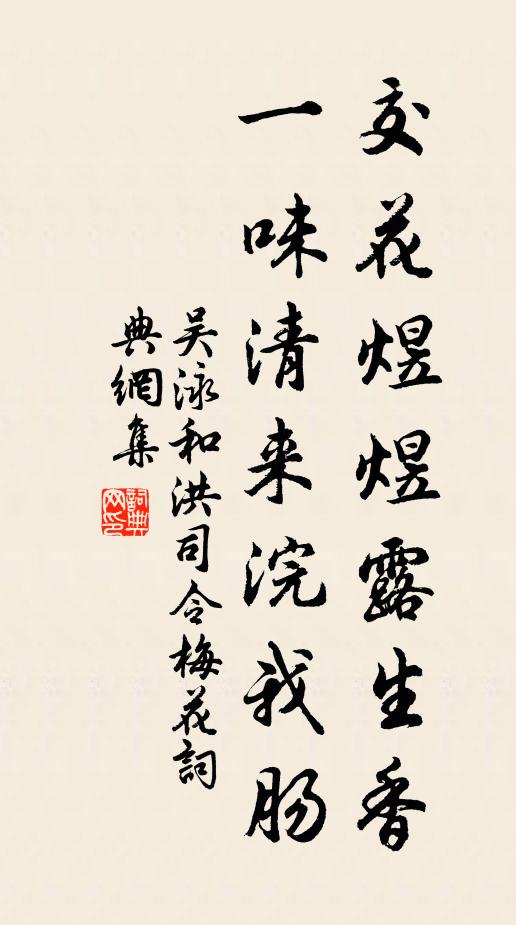 交花煜煜露生香
一味清来浣我肠
吴泳和洪司令梅花詞
典網集
詞典网印